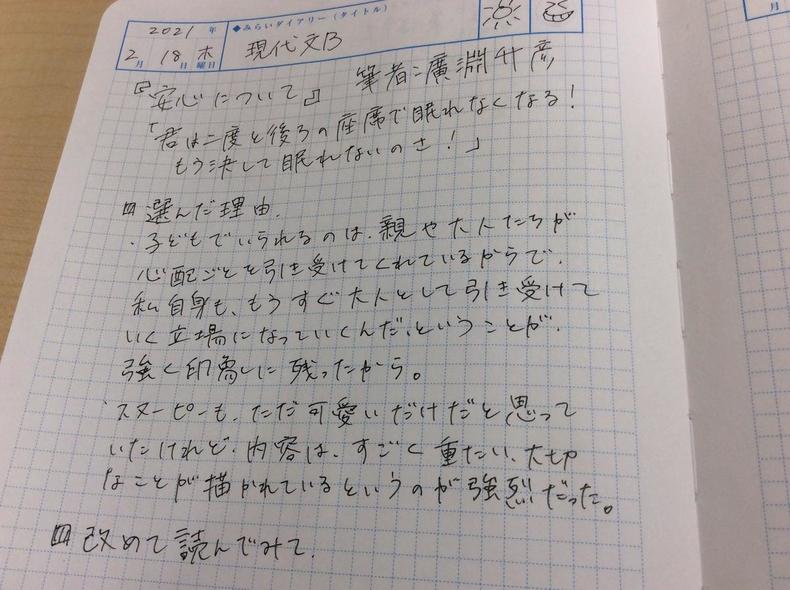 2021年
◆みらいダイアリー(タイトル)
2月18日木曜日
現代文B
『安心について』 筆者:廣淵升彦
「君は二度と後ろの座席で眠れなくなる!
もう決して眠れないのさ!」
選んだ理由.
・子どもでいられるのは、親や大人たちが
心配ごとを引き受けてくれているからで、
私自身も、もうすぐ大人として引き受けて
いく立場になっていくんだ、ということが、
強く印象に残ったから。
・スヌーピーも、ただ可愛いだけだと思って
いたけれど、内容は、すごく重たい、大切
なことが描かれているというのが強烈だった。
改めて読んでみて.
月